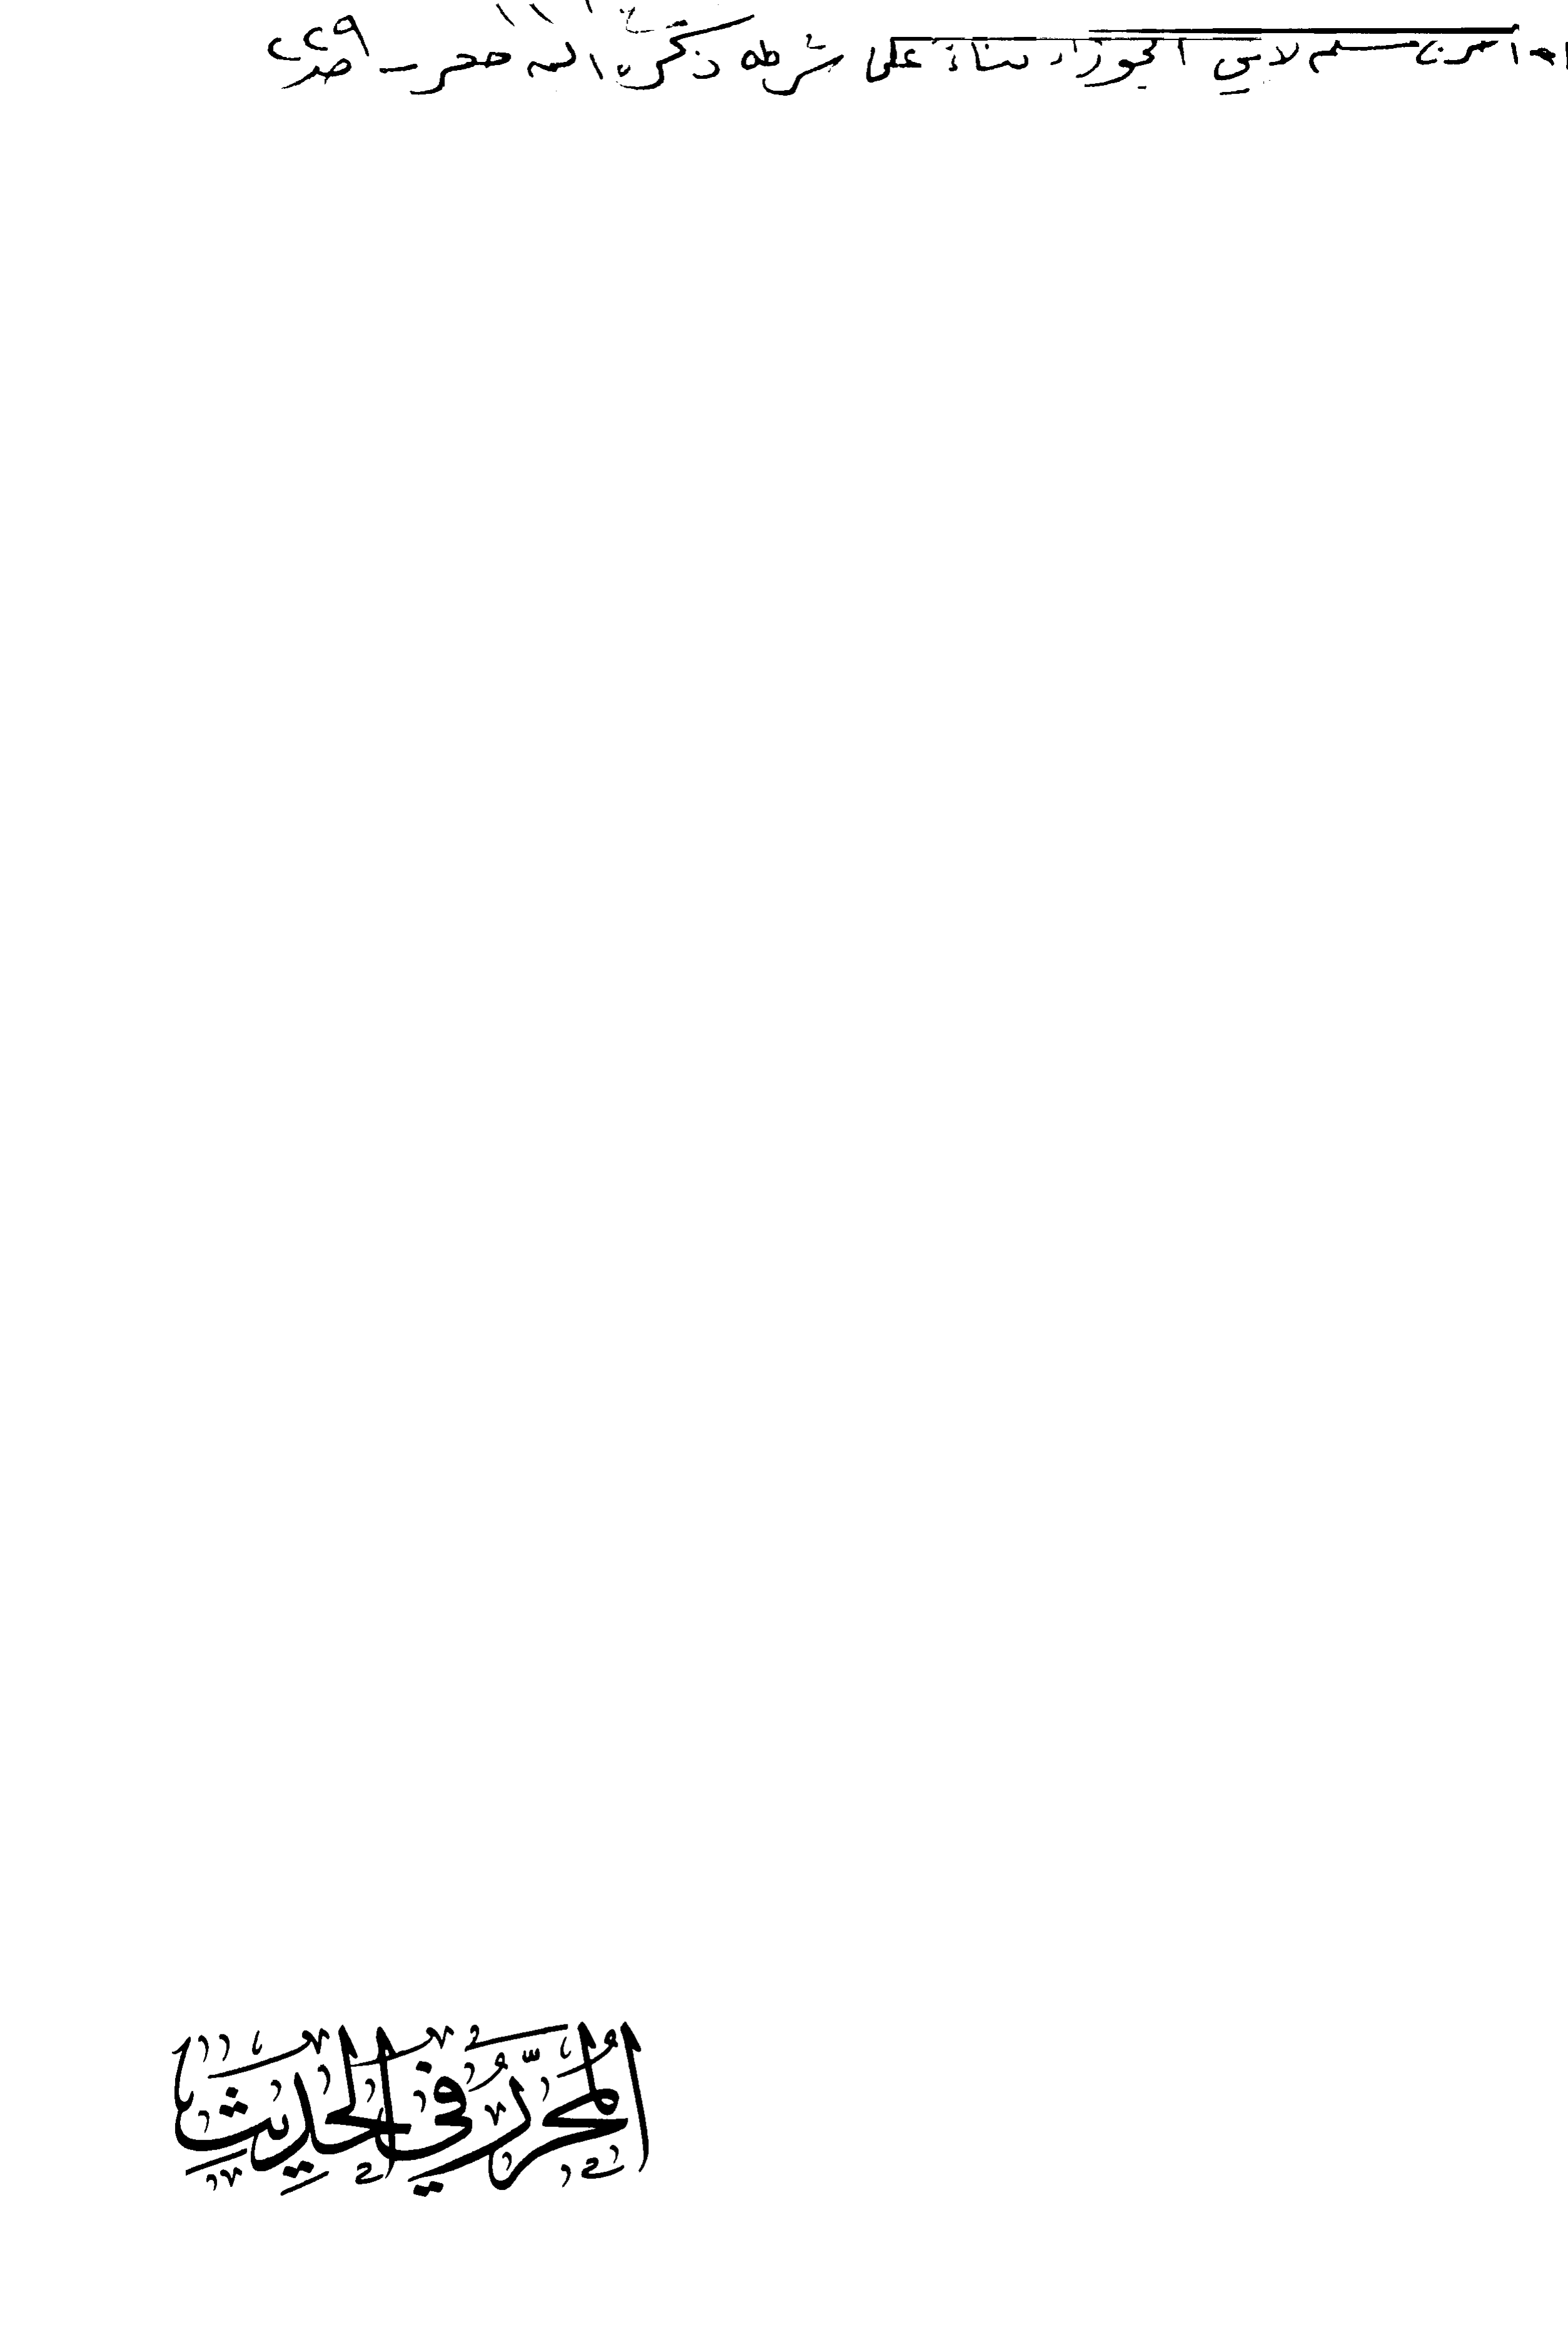 أخرج مسلم لأبي الجوزاء بناءً على شرطه ذكره ابن حجر - ص ٤٩
المحرر في الحديث